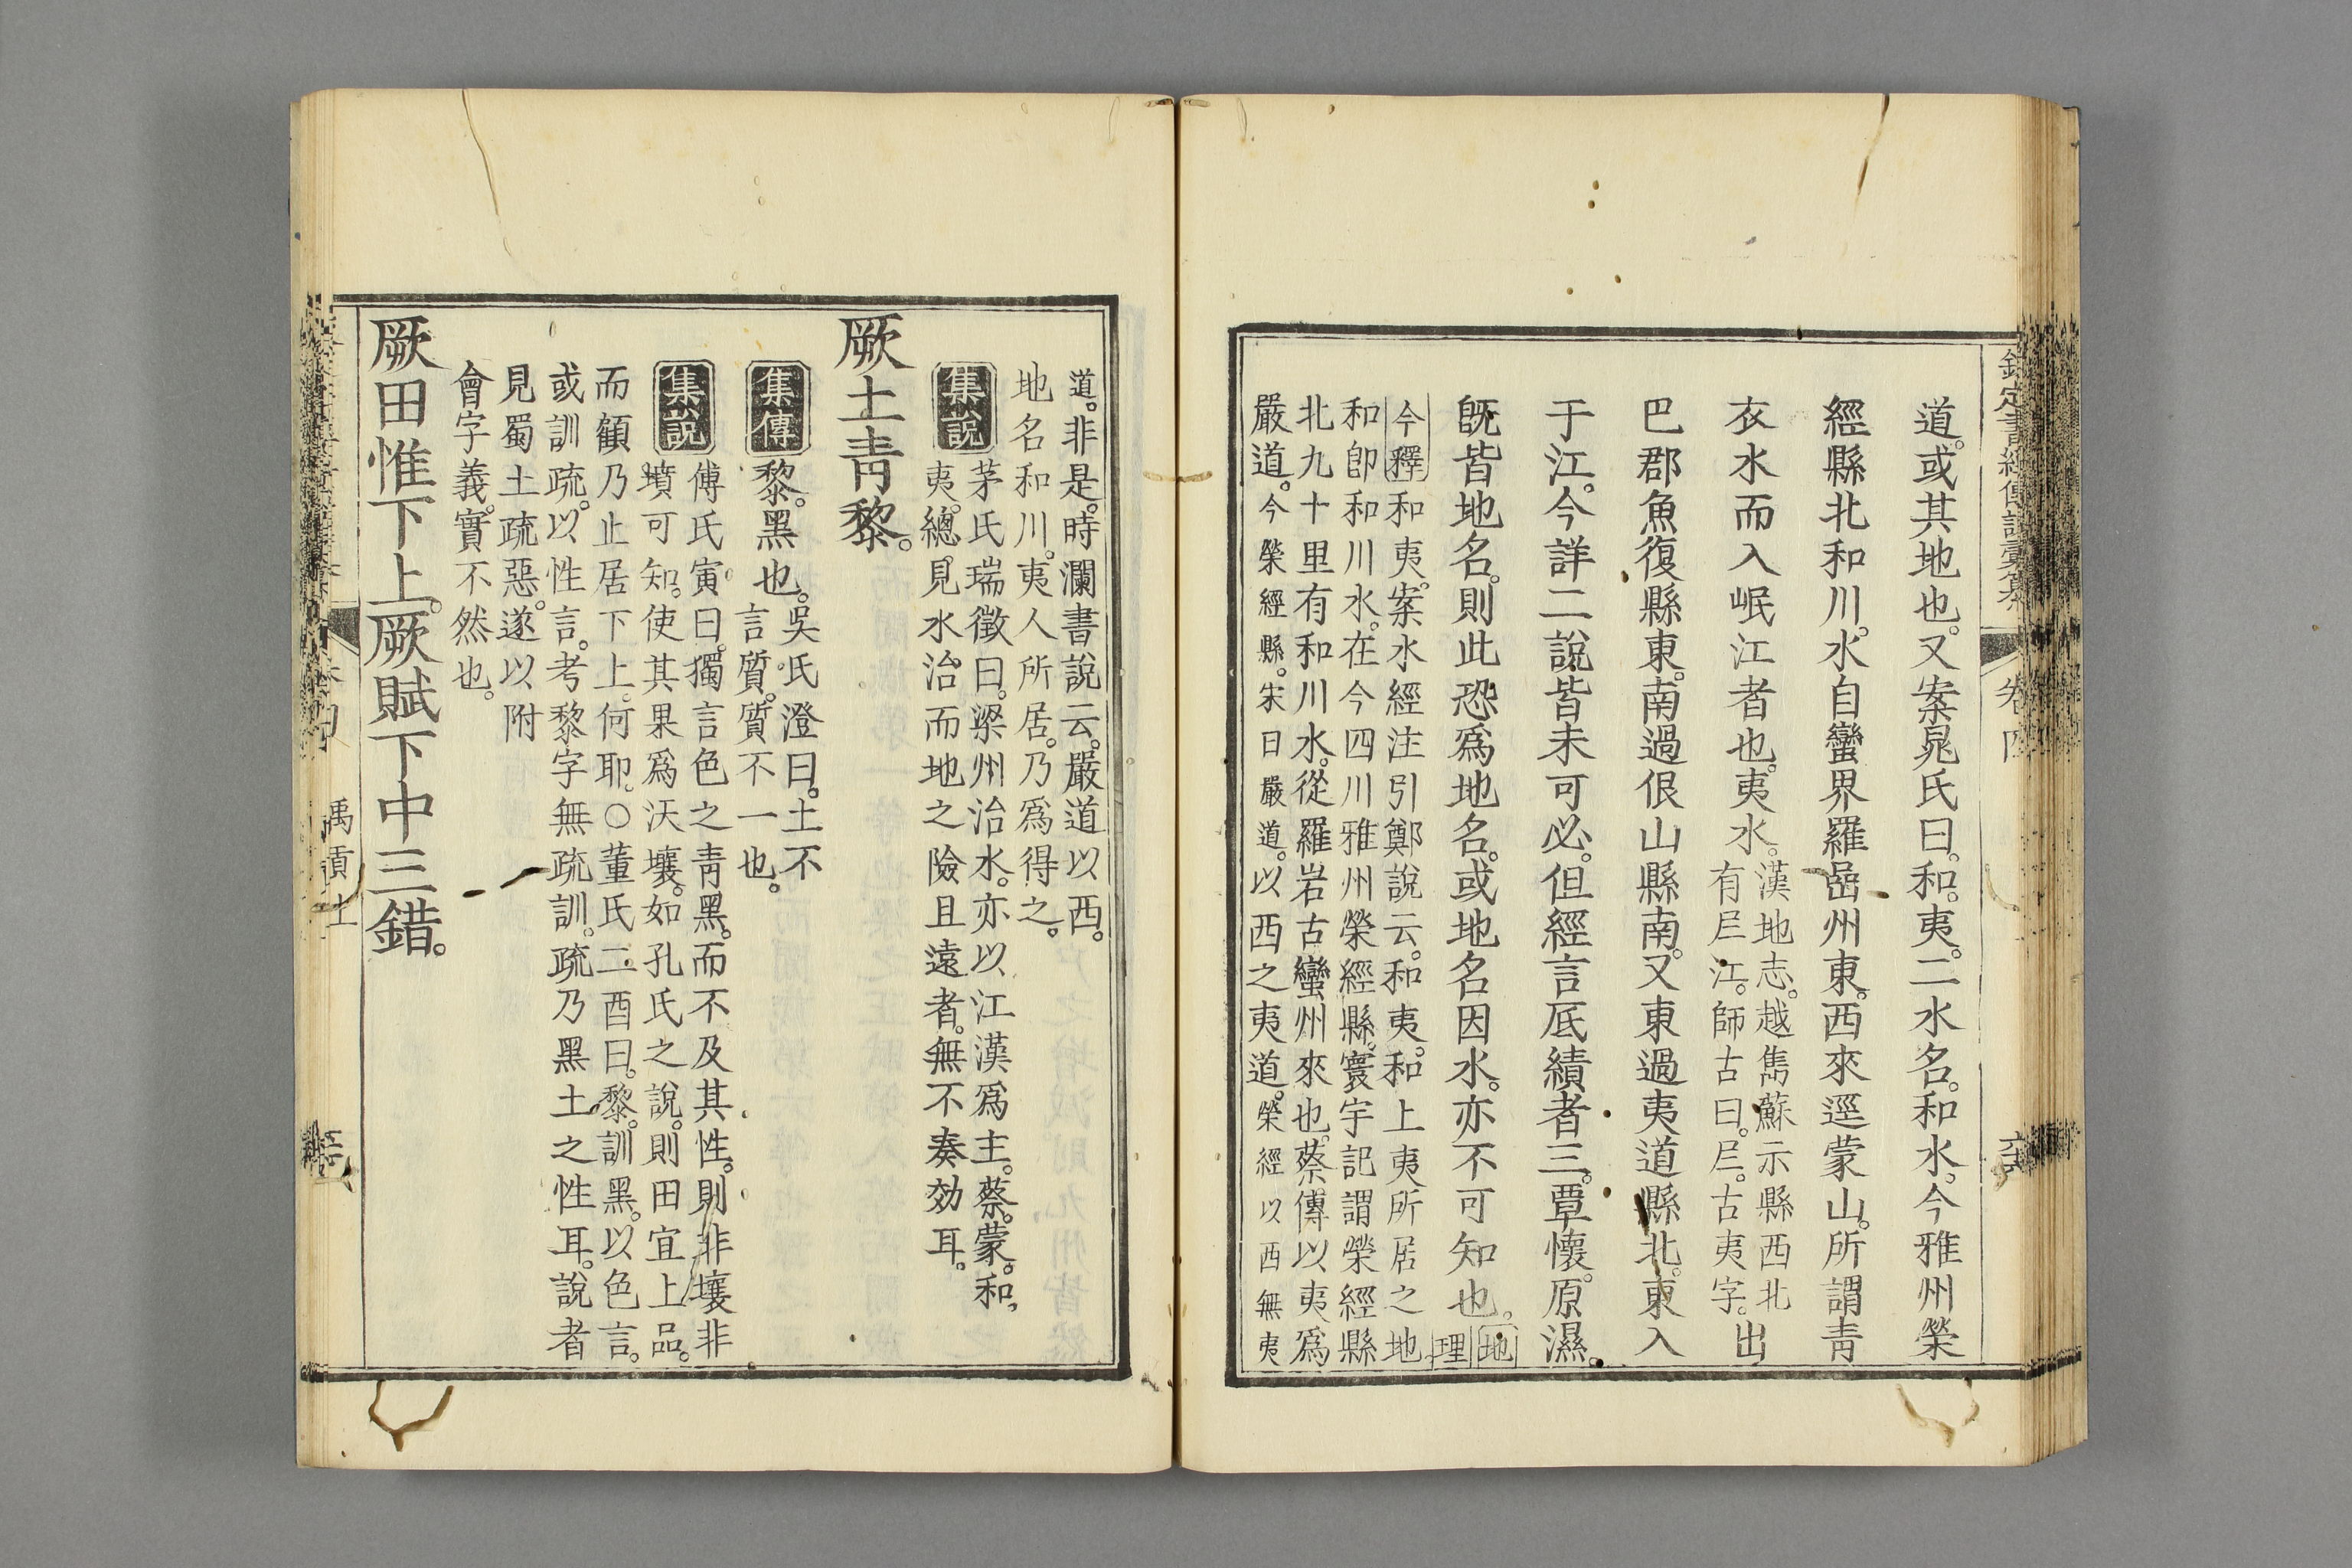 道。或其地也。又案晁氏曰。和。夷。二水名。和水。今雅州榮
經縣北和川。水自蠻界羅嵒州東。西來逕蒙山。所謂靑
衣水而入岷江者也。夷水。漢地志。越雋蘇示縣西北
有𡰥江。師古曰。𡰥。古夷字。出
巴郡魚復縣東。南過佷山縣南。又東過夷道縣北。東入
于江。今詳二說皆未可必。但經言厎績者三。覃懷。原濕。
旣皆地名。則此恐爲地名。或地名因水。亦不可知也。地
理
今釋和夷。案水經注引鄭說云。和夷。和上夷所居之地。
和卽和川水。在今四川雅州榮經縣。寰宇記謂榮經縣
北九十里有和川水。從羅岩古蠻州來也。蔡傳以夷爲
嚴道。今榮經縣。宋曰嚴道。以西之夷道。榮經以西無夷
道。非是。時瀾書說云。嚴道以西。
地名和川。夷人所居。乃爲得之。
集說 茅氏瑞徵曰。梁州治水。亦以江漢爲主。蔡。蒙。和。
夷。總見水治而地之險且遠者。無不奏効耳。
厥土靑黎。
集傳 黎。黑也。吳氏澄曰。土不
言質。質不一也。
集說 傅氏寅曰。獨言色之靑黑。而不及其性。則非壤非
墳可知。使其果爲沃壤。如孔氏之說。則田宜上品。
而顧乃止居下上。何耶。〇董氏二酉曰。黎。訓黑。以色言。
或訓疏。以性言。考黎字無疏訓。疏乃黑土之性耳。說者
見蜀土疏惡。遂以附
會字義。實不然也。
厥田惟下上。厥賦下中三錯。
卷四
禹貢上